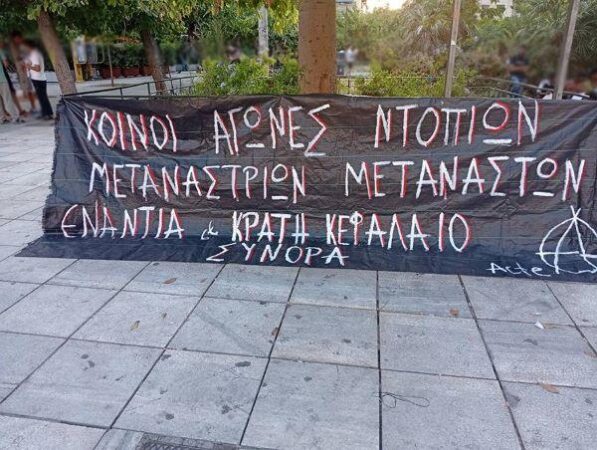 ΚΟΙΝΟΙ ΑΓΩΝΕΣ ΝΤΟΠΙΩΝ
ΜΕΤΑΝΑΣΤΡΙΩΝ ΜΕΤΑΝΑΣΤΩΝ
ΕΝΑΝΤΙΑ σε ΚΡΑΤΗ ΚΕΦΑΛΑΙΟ
ΣΥΝΟΡΑ
Acte